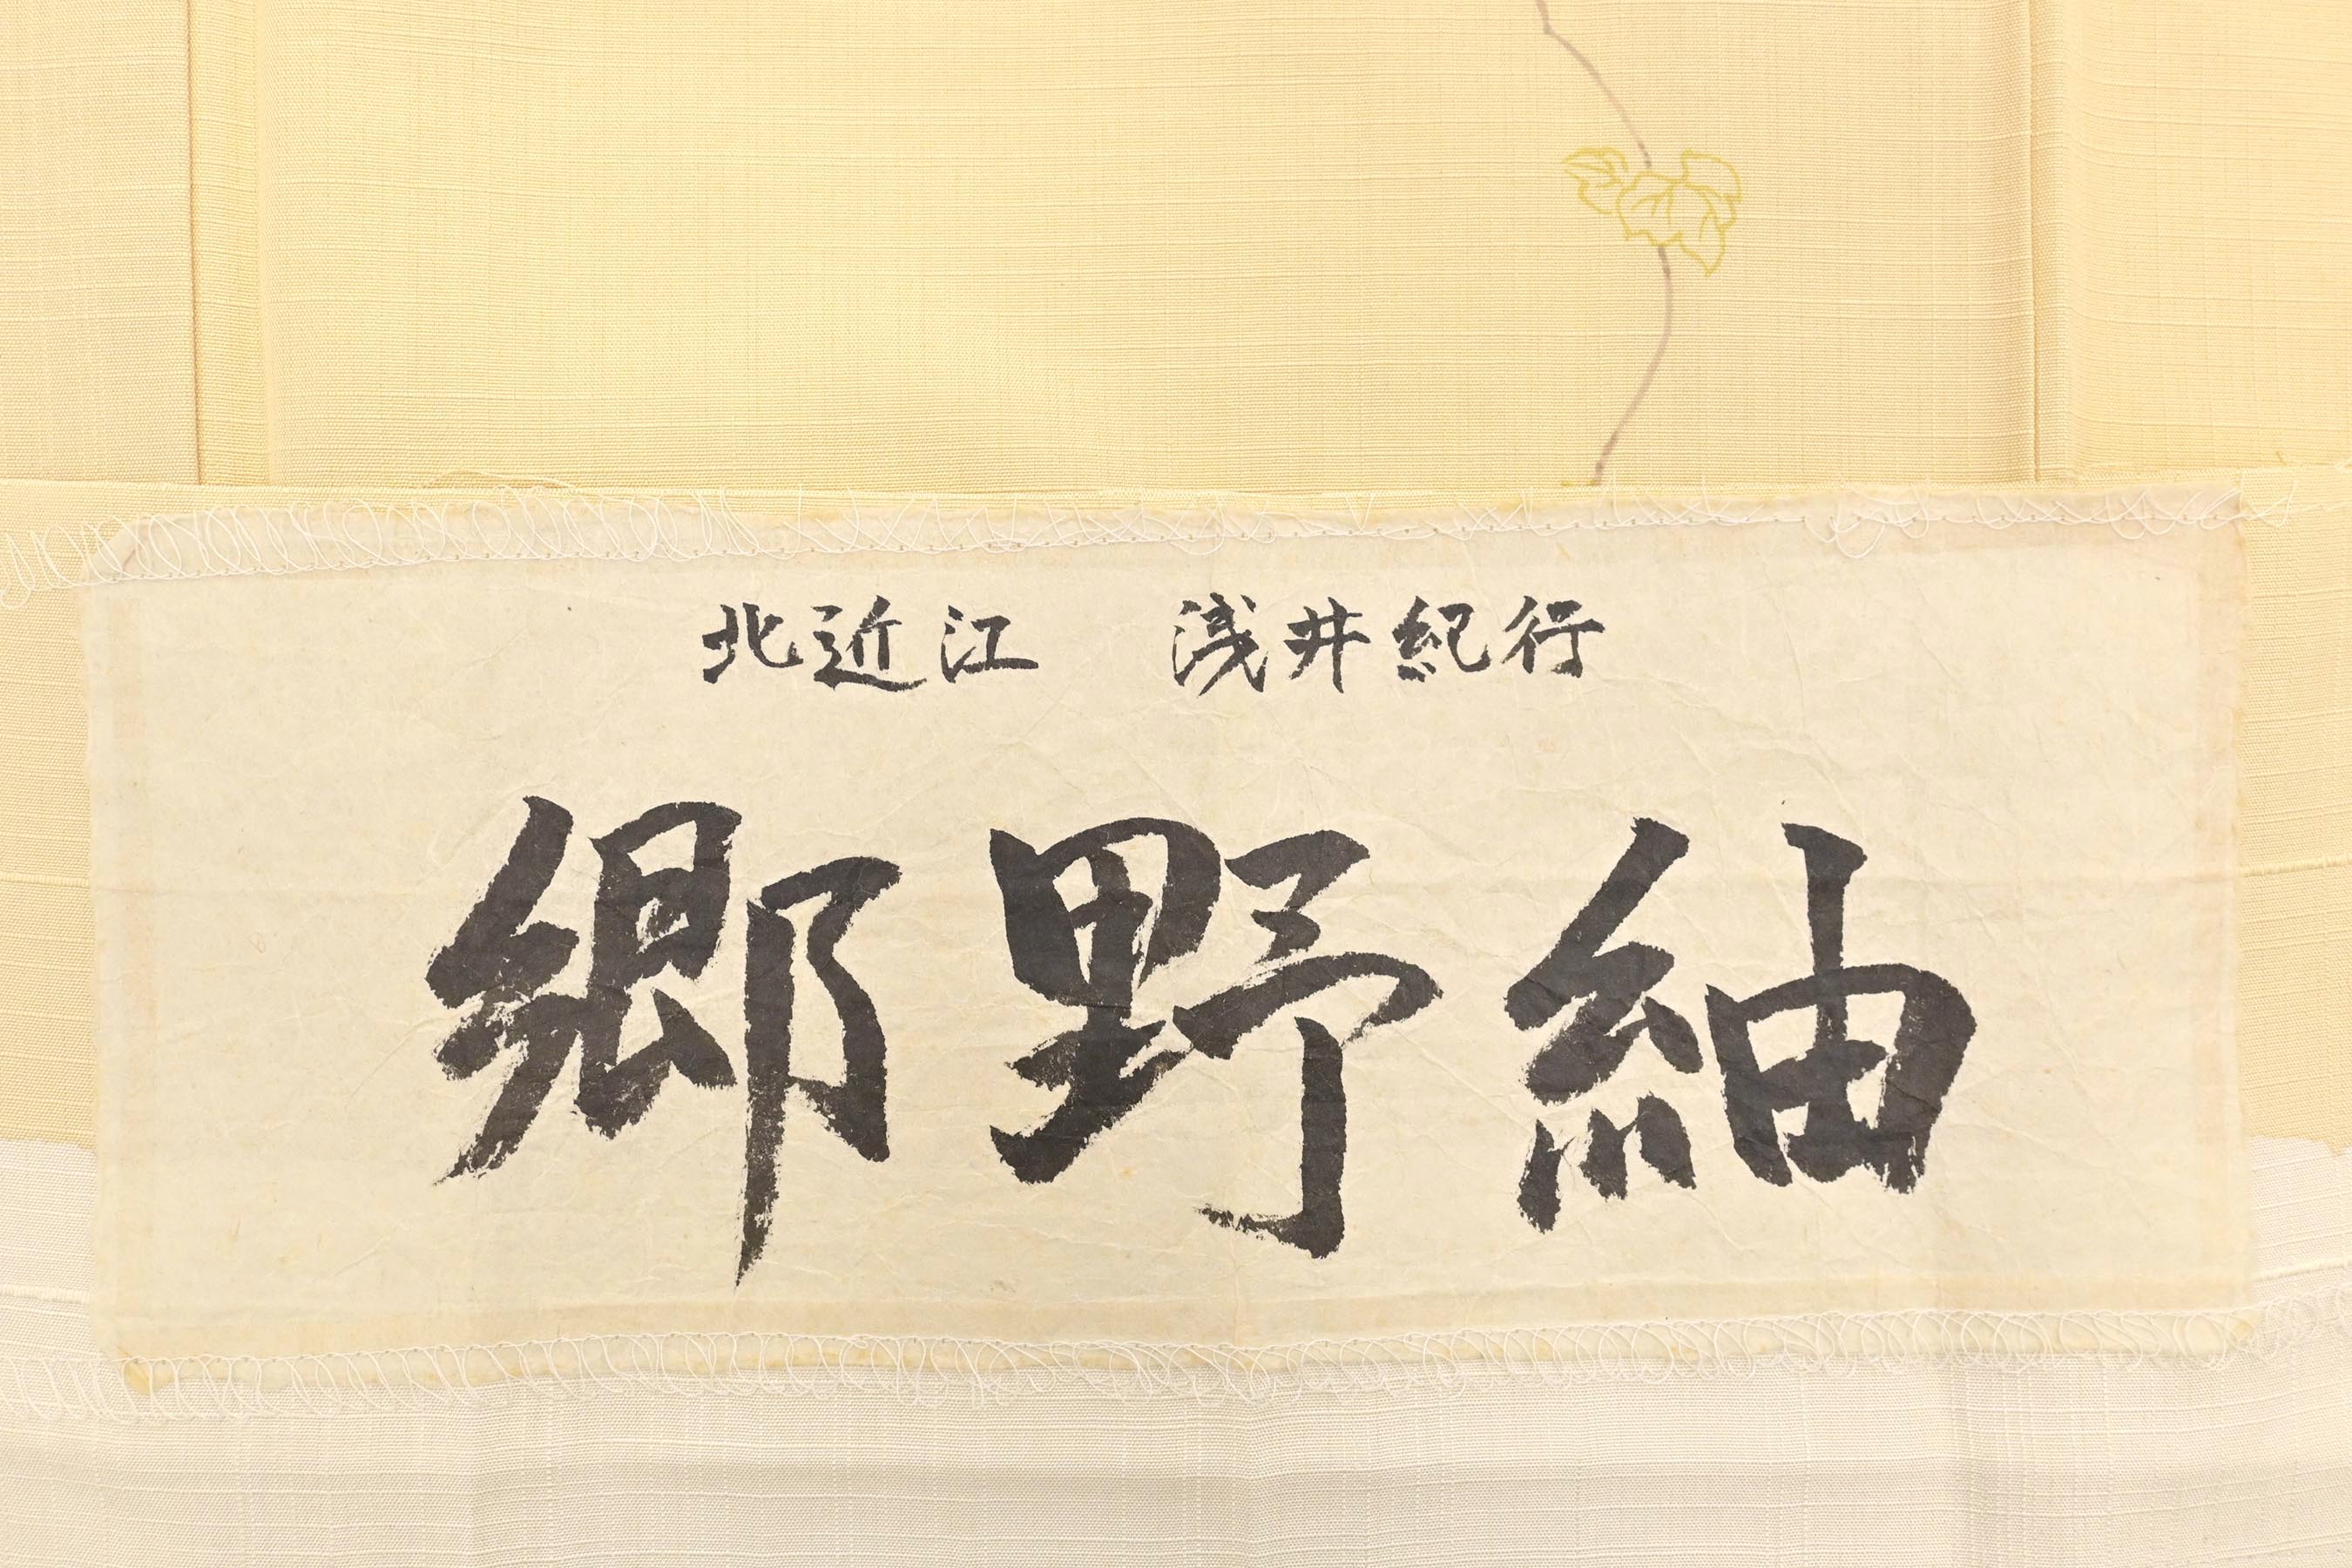 北近江　浅井紀行
郷野紬